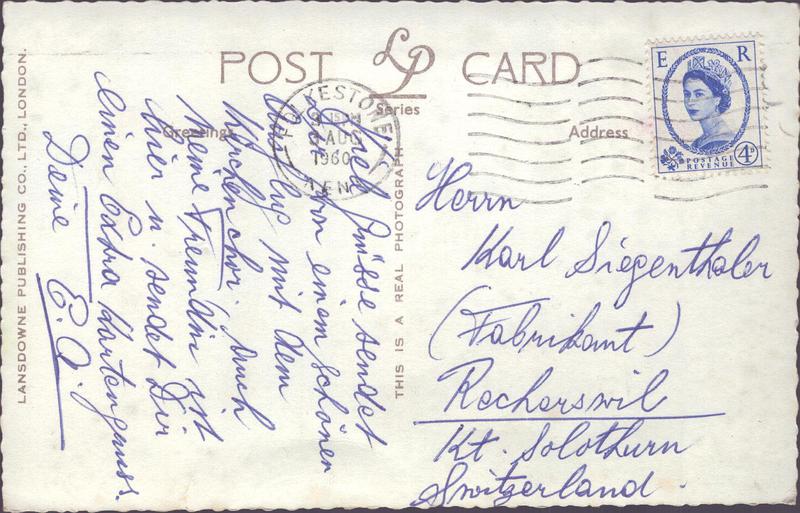 POST CARD
LP
Series
Greetings
Address
E R
POSTAGE
REVENUE
4D
FOLKESTONE
9 AUG
1960
KENT
LANSDOWNE PUBLISHING CO., LTD., LONDON.
THIS IS A REAL PHOTOGRAPH
Grüsse sendet
von einem schönen
mit dem
Kirchenchor. Auch
meine Freundin ist
hier u. sendet Dir
einen Extra Kartengruss.
Deine E.
Herrn
Karl Siegenthaler
(Fabrikant)
Recherswil
Kt. Solothurn
Switzerland.